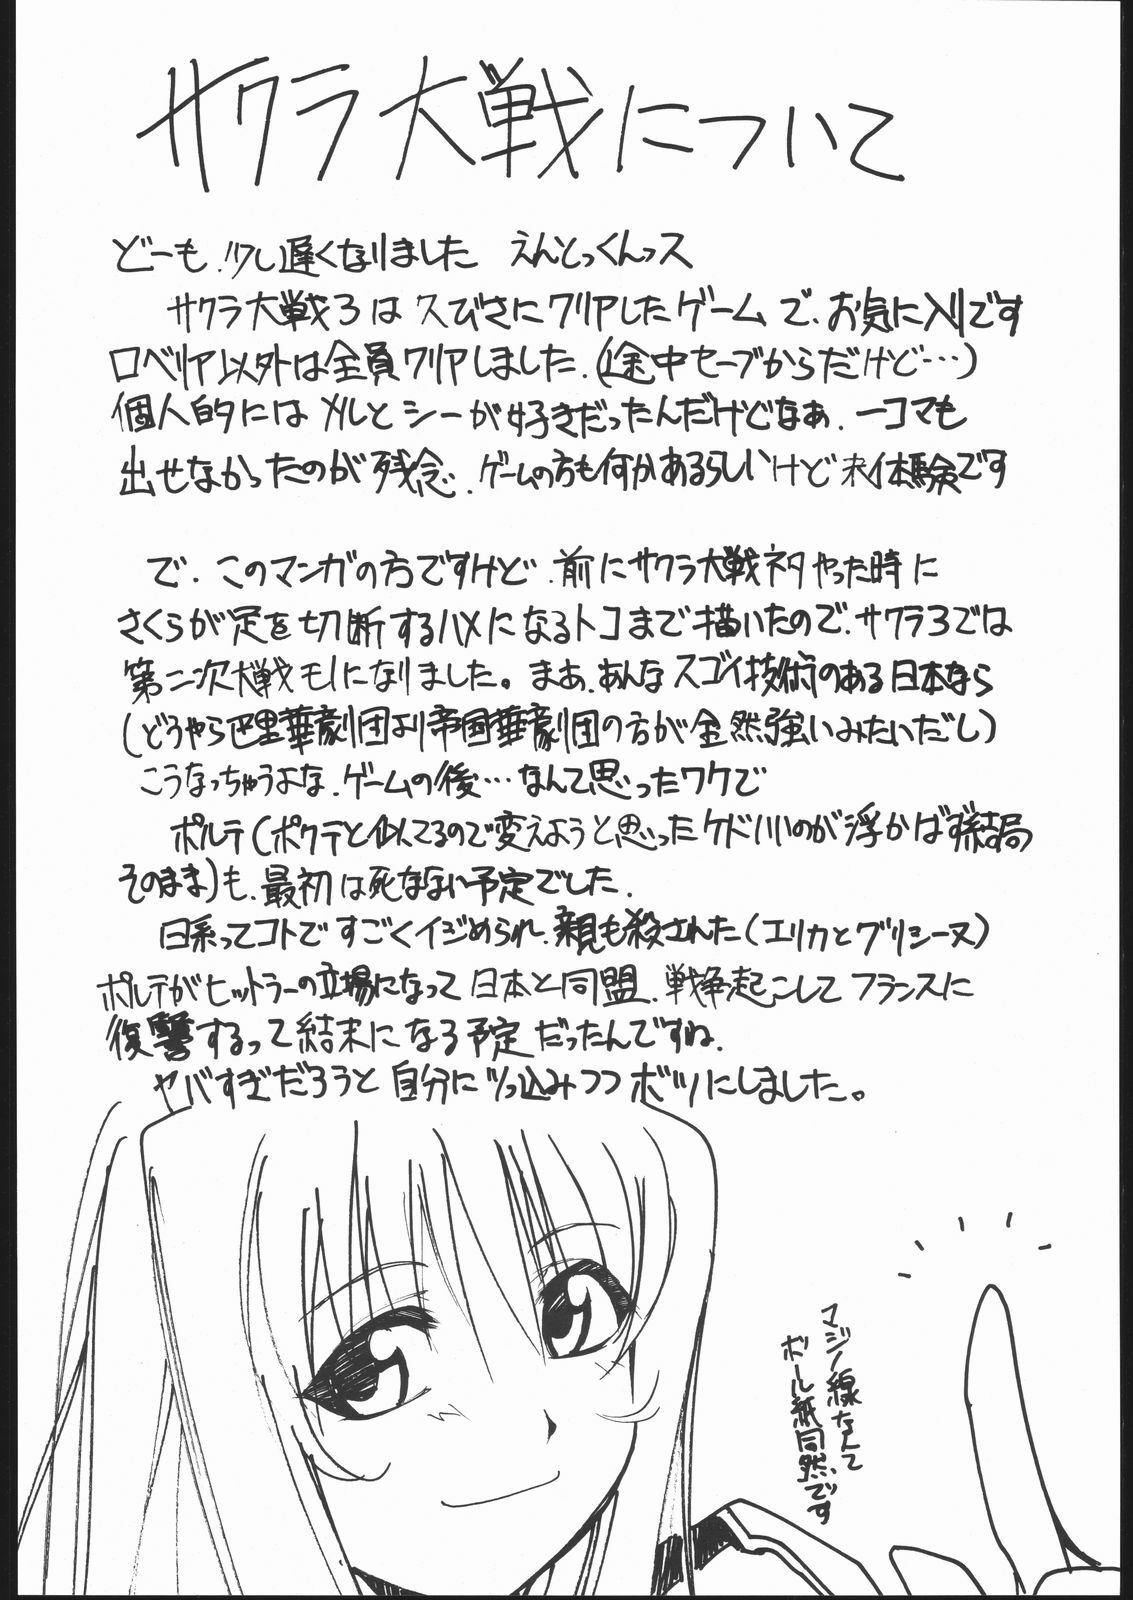 サクラ大戦について
どーも、少し遅くなりました えんとっくんっス
サクラ大戦3は久びさにクリアしたゲームで、お気に入りです
ロベリア以外は全員クリアしました。(途中セーブからだけど…)
個人的にはメルとシーが好きだったんだけどなぁ、一コマも
出せなかったのが残念、ゲームの方も何かあるらしいけど未体験です
で、このマンガの方ですけど、前にサクラ大戦ネタやった時に
さくらが足を切断するハメになるトコまで描いたので、サクラ3では
第二次大戦モノになりました。まあ、あんなスゴイ技術のある日本なら
(どうやら巴里華劇団より帝国華劇団の方が全然強いみたいだし)
こうなっちゃうよな、ゲームの後…なんて思ったワケで
ポルテ(ポクテと似てるので変えようと思ったケドいいのが浮かばず結局
そのまま)も、最初は死なない予定でした。
日系ってコトですごくイジめられ、親も殺された(エリカとグリシーヌ)
ポルテがヒットラーの立場になって日本と同盟、戦争起こしてフランスに
復讐するって結末になる予定だったんですね、
ヤバすぎだろうと自分にツっ込みつつボツにしました。
マジノ線なんて
ボール紙同然です